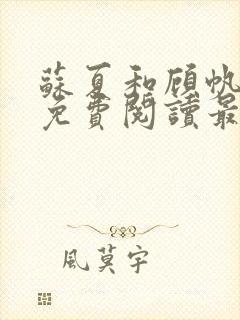 蘇夏和顾帆
免費閱讀最
風莫宇